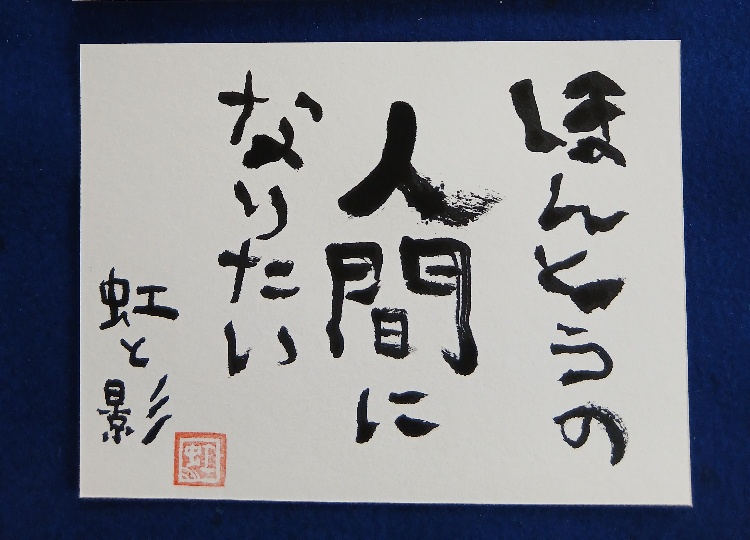 ほんとうの
人間に
なりたい
虹と影
虹